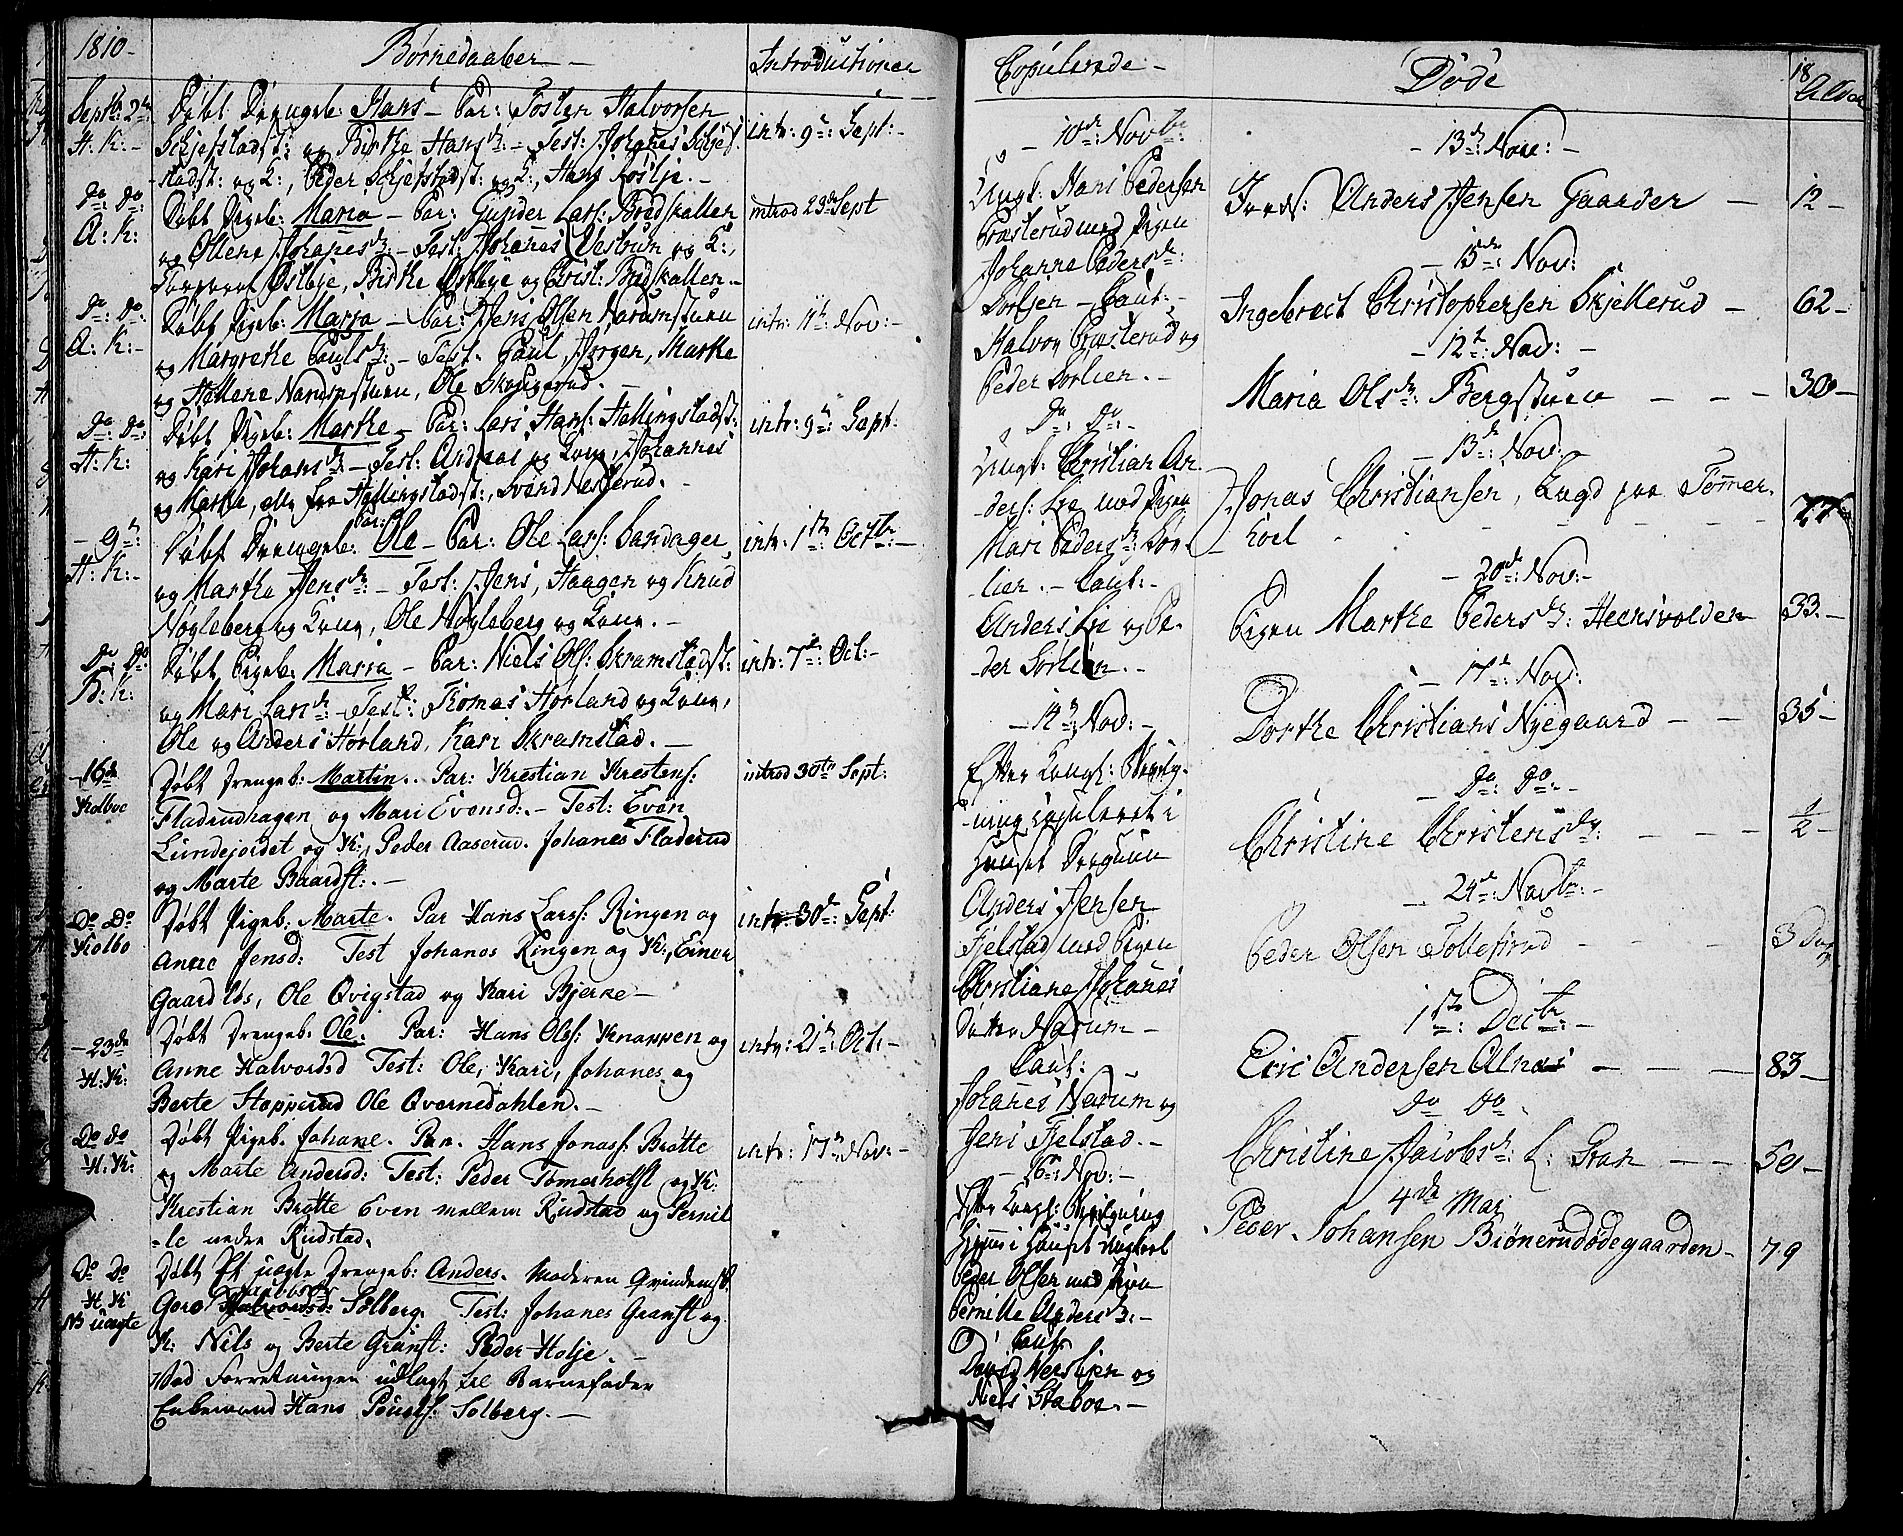 1810-
Børnedaaber -
Introductioner
Septb: 2den
H: K: -
Døbt Drengeb: Hans - Par: Tosten Halvorsen
og Birthe Hansd: - Test: Johanes Schjef-
stadst: og K:, Peder Schjefstadst: og K:, Hans
intr: 9de: Sept: -
Do: Do:
A: K:
Døbt Pigeb: Maria - Par: Gunder Lars: Bredskallen
og Ollena Johanesd: - Test: Johanes Vestrum og K:,
Østbye, Birthe Østbye og Christ: Bredskallen. -
introd 23de Sept
Do: Do:
A: K: -
Døbt Pigeb: Maria - Par: Jens Olsen Narumstuen
og Margrethe Paulsd: - Test: Paul, Jørgen, Marthe
og Hallene Narumstuen, Ole
intr: 11te: Nov: -
Do: Do:
H: K:
Døbt Pigeb: Marthe - Par: Lars Hans: Hallingstadst:
og Kari Johansd: - Test: Andreas og Kone, Johannes
og Marthe, alle fra Hallingstadst:, Svend Nesterud. -
intr: 9de: Sept:
- 9de:
H: K: -
Døbt Drengeb: Ole - Par: Ole Lars: Sandager
og Marthe Jensd: - Test: Jens, Haagen og Knud
Nøgleberg og Kone, Ole Nøgleberg og Kone. -
intr: 1ste: Octbr: -
Do: Do
H: K:
Døbt Pigeb: Maria - Par: Niels Ols: Skramstadst:
og Mari Larsd: - Test: Thomas Hørland og Kone,
Ole og Anders Hørland, Kari Skramstad. -
intr: 7de: Oct: -
- 16de
Kolboe
Døbt Drengeb: Martin. Par: Krestian Krestens:
Fladrudhagen og Mari Evensd: - Test: Even
Lundejordet og K:, Peder Aaserud. Johanes Fladerud
og Marte Baardst: -
introd 30te Sept:
Do Do
Kolbo
Døbt Pigeb: Marte. Par Hans Larss: Ringen og
Anne Jensd: Test Johanes Ringen og K:, Einer
Gaardløs, Ole Qvigstad og Kari Bjerke -
intr 30te: Sept:
- 23de
H: K:
Døbt Drengeb: Ole. Par: Hans Olss: Knappen og
Anne Halvorsd Test: Ole, Kari, Johanes og
Berte Stopperud Ole Qvernedahlen. -
intr: 21de: Oct: -
Do Do
H: K:
Døbt Pigeb. Johane. Par. Hans Jonass: Brøtte
og Marte Andersd: Test: Peder Tømerholst og K:
Krestian Brøtte Even mellem Rudstad og Pernil
-le nedre Rudstad.
intr: 17de: Nov: -
Do Do
H: K
NB uægte
Døbt Et uægte Drengeb: Anders. Moderen Qvindemst.
Goro Halvorsd: Solberg. Test: Johanes Granst og
K: Nils og Berte Granst: Peder Holje. -
Ved Forretningen udlagt til Barnefader
Enkemand Hans Pouels: Solberg. -
Copulerede. -
- 10de: Novbr:
Ungk: Hans Pedersen
Præsterud med Pigen
Johanne Pedersd:
Sorlien - Caut: -
Halvor Præsterud og
Peder Sorlien. -
Do: Do: -
Ungk: Christian An-
ders: Lie med Pigen
Mari Pedersd: Sor-
-lien. - Caut: -
Anders Lie og Pe-
der Sorlien. -
- 14de: Nov: -
Efter Kongl: Bevilg-
-ning copuleret i
Huuset Dragoun
Anders Jensen
Fjelstad med Pigen
Christiane Johanes
Datter Narum -
Caut:
Johanes Narum og
Jens Fjelstad. -
- 16de: Nov: -
Efter Kongl: Bevilgning
hiemme i Huuset Ungkarl
Peder Olsen med Pigen
Pernille Andersd: -
Caut:
Niels Staboe. -
Døde
18
Alder
- 13de: Nov: -
Anders Jensen Gaarder - 12 -
- 15de: Nov:
Ingebrect Christophersen Skjellerud - 62 -
- 12te: Nov: -
Maria Olsd: Bergstuen - - - 30 -
- 13de: Nov:
Jonas Christiansen, Lægd paa Tømer-
hoel - - - - - - 77
- 20de: Nov: -
Pigen Marthe Pedersd: Heensvolden 33. -
- 17de: Nov:
Dorthe Christians Nyegaard - - 35 -
- Do: Do: -
Christine Christensd: - - - 1/2 -
- 24de: Novbr: -
Peder Olsen Tollefsrud - - - 3 Dage
1ste: Decbr: -
Eric Andersen Alnæs - - - 83 -
Do Do
Christine Jacobsd: L: Gran - - 50 -
4de Mai
Peder Johansen Biønerudødegaarden - 79